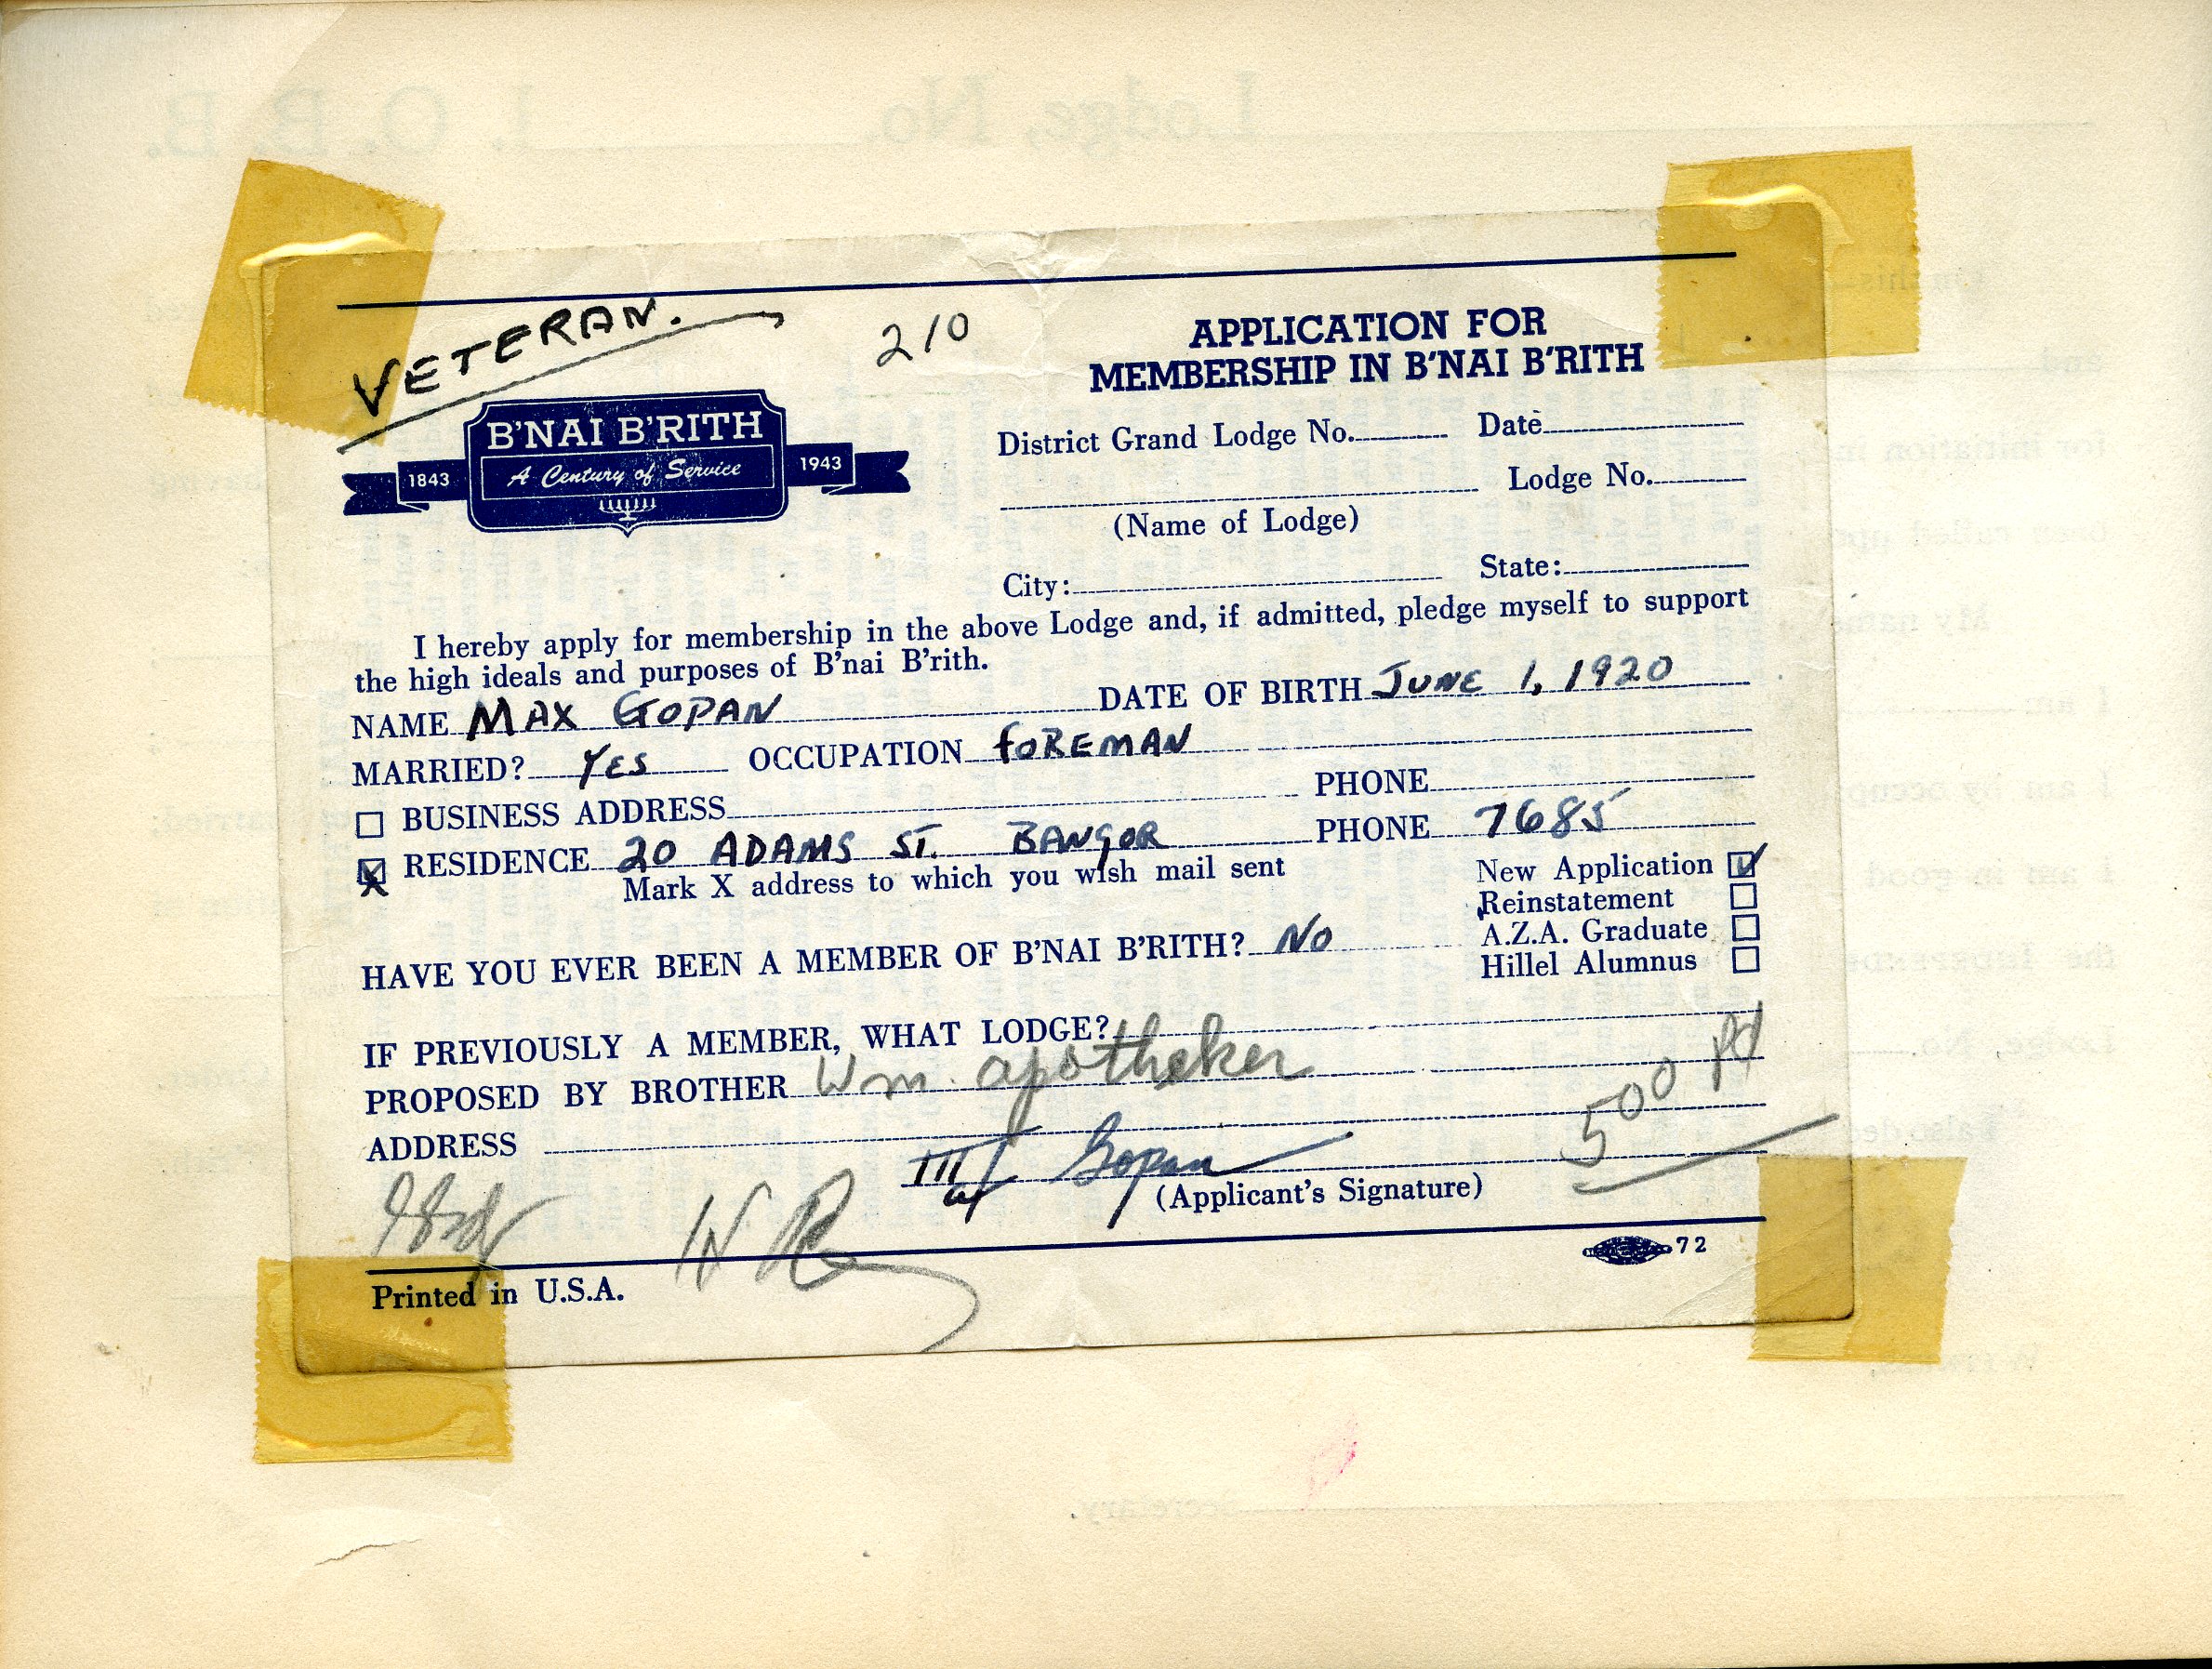 Lodge, No. I. O. B. B.
VETERAN.
210
APPLICATION FOR
MEMBERSHIP IN B'NAI B'RITH
B'NAI B'RITH
1843 A Century of Service 1943
District Grand Lodge No. Date
Lodge No.
(Name of Lodge)
City: State:
I hereby apply for membership in the above Lodge and, if admitted, pledge myself to support
the high ideals and purposes of B'nai B'rith.
NAME MAX GOPAN DATE OF BIRTH JUNE 1, 1920
MARRIED? YES OCCUPATION FOREMAN
BUSINESS ADDRESS PHONE
RESIDENCE 20 ADAMS ST. BANGOR PHONE 7685
Mark X address to which you wish mail sent
New Application
Reinstatement
A.Z.A. Graduate
Hillel Alumnus
HAVE YOU EVER BEEN A MEMBER OF B'NAI B'RITH? NO
IF PREVIOUSLY A MEMBER, WHAT LODGE?
PROPOSED BY BROTHER Wm. Apotheker
500 Pd
ADDRESS
Gopan
(Applicant's Signature)
72
Printed in U.S.A.
Secretary.